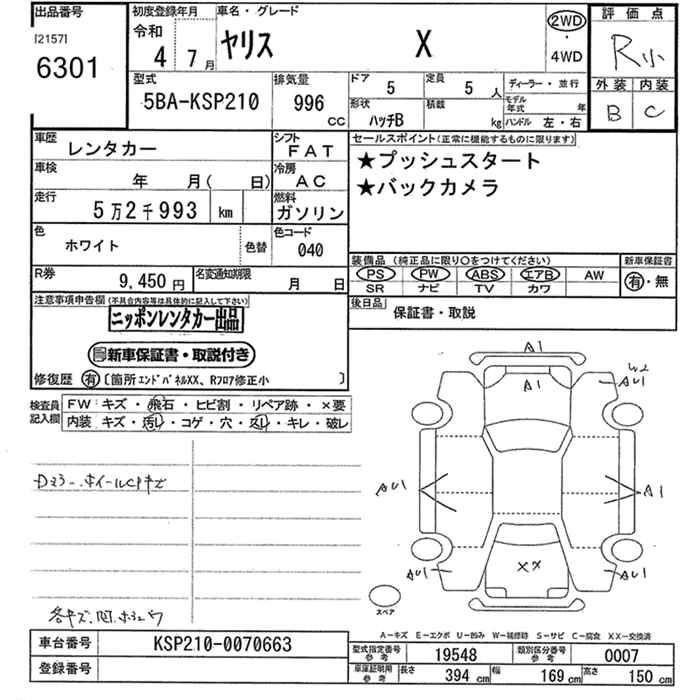 出品番号 初度登録年月 車名・グレード 評価点
[2157] 令和 ヤリス X 2WD・4WD R小
6301 4 7月
型式 排気量 ドア 5 定員 5人 ディーラー・並行 外装 内装
5BA-KSP210 996 CC 形状 ハッチB 積載 kg モデル年式 年 ハンドル 左・右 B C
車歴 レンタカー シフト FAT セールスポイント(正常に機能するものに限ります)
車検 年 月( 日) 冷房 AC ★プッシュスタート
走行 5万2千993 km 燃料 ガソリン ★バックカメラ
色 ホワイト 色替 色コード 040
装備品(純正品に限り○をつけてください) 新車保証書
R券 9,450円 名変通知期限 月 日 PS PW ABS エアB AW 有・無
SR ナビ TV カワ
注意事項申告欄(不具合内容等は具体的に記入して下さい) 後日品 保証書・取説
ニッポンレンタカー出品
新車保証書・取説付き
修復歴 有 〔箇所 エンドパネルXX、Rフロア修正小 〕
検査員記入欄 FW:キズ・飛石・ヒビ割・リペア跡・×要
内装 キズ・汚し・コゲ・穴・返し・キレ・破レ
A1
A1
W2
AU1
AU1 A1
AU1 XX AU1
スペア
A-キズ E-エクボ U-凹み W-補修跡 S-サビ C-腐食 XX-交換済
車台番号 KSP210-0070663 型式指定番号 参考 19548 類別区分番号 参考 0007
登録番号 車庫証明用 参考 長さ 394 cm 幅 169 cm 高さ 150 cm